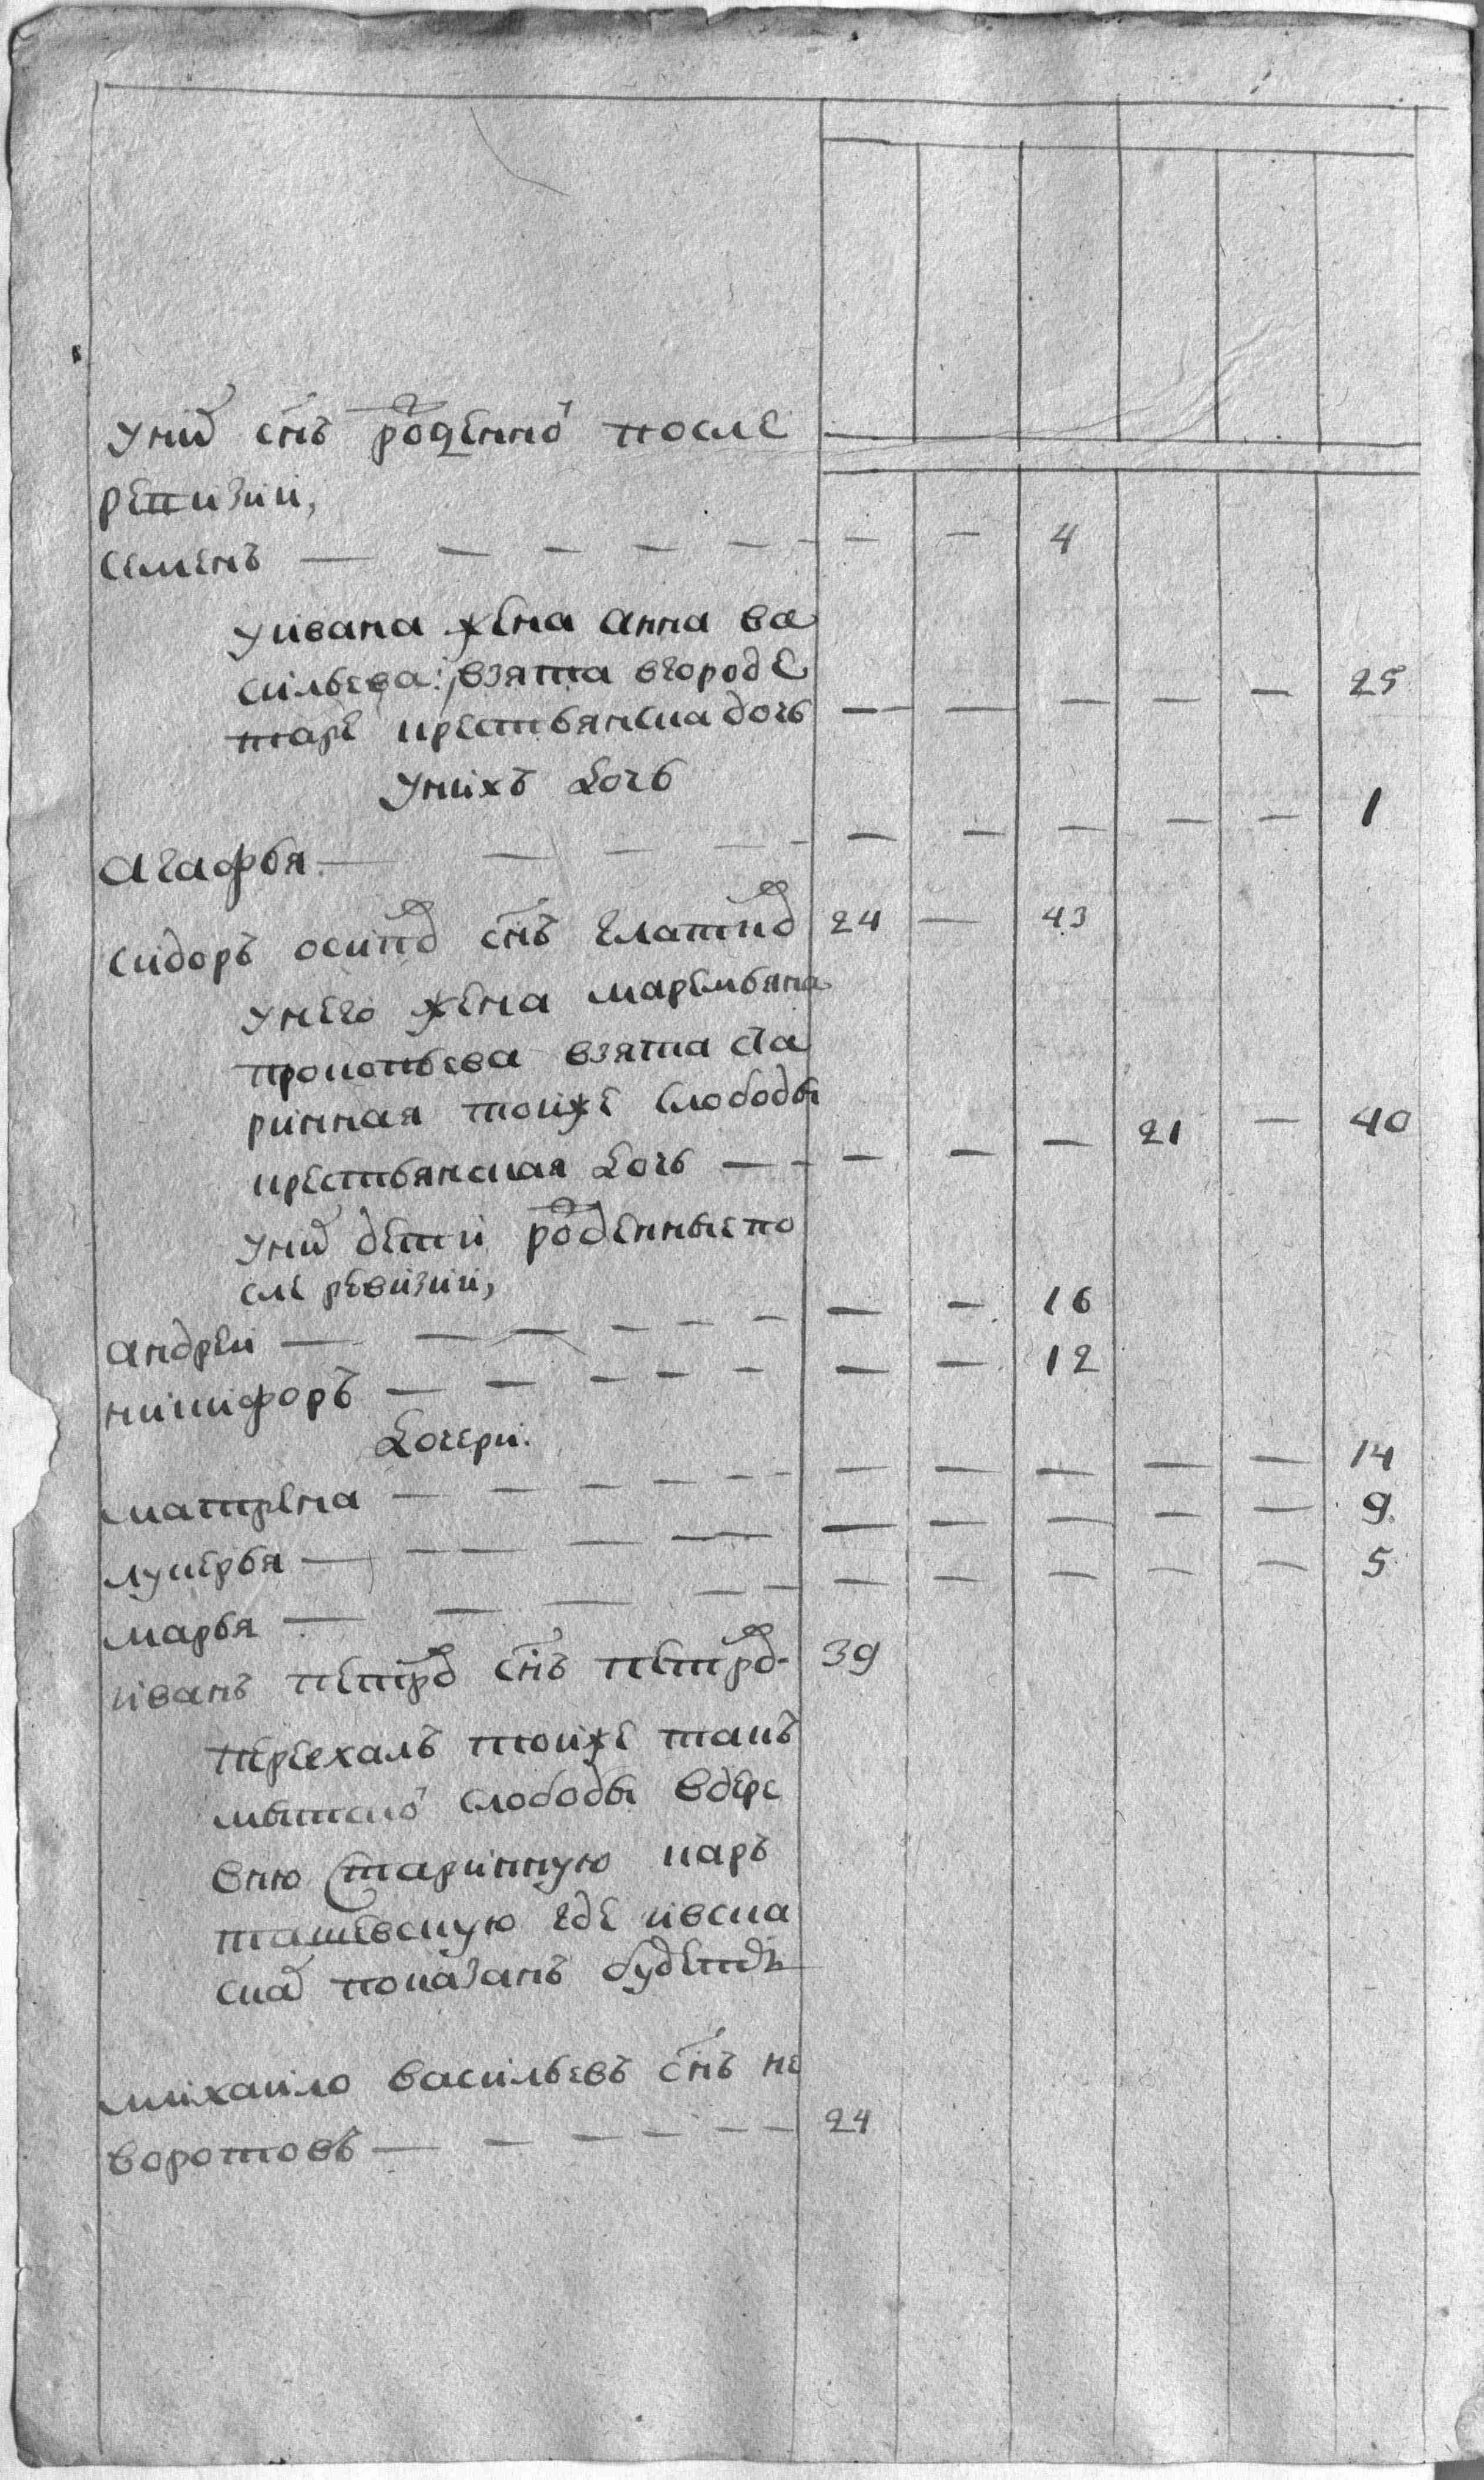 у них снъ рожденной после
ревизии,
семенъ — — — — — — — 4
у ивана жена анна ва
сильева: взята в городе
таре крестьянска дочь — — — — — 25
у них дочь
агафья — — — — — — — — — 1
сидоръ осиповъ снъ 24 — 43
у него жена маремьяна
прокопьева взята ста
ринная тойже слободы
крестьянская дочь — — — — — 21 — 40
у них дети рожденные по
сле ревизии,
андреи — — — — — — — — 16
никифоръ — — — — — — — 12
дочери.
матрена — — — — — — — — — — — 14
лукерья — — — — — — — — — — 9
марья — — — — — — — — — — 5
иванъ петровъ снъ петровъ 39
переехалъ тойже тапъ
мытской слободы в дере
вню старинную карь
ташевскую где и в ска
ске показанъ будетъ
михаило васильевъ снъ не
воротовъ — — — — — — 24